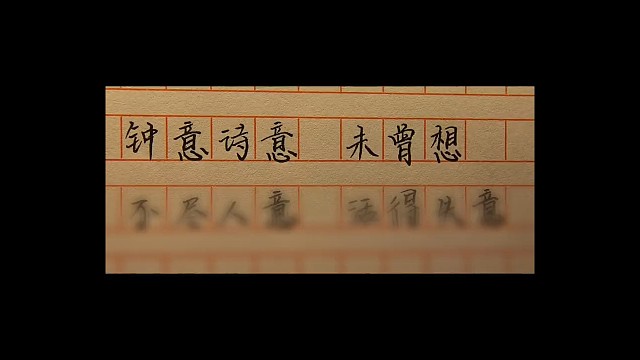 钟意诗意 未曾想
不尽人意 活得失意